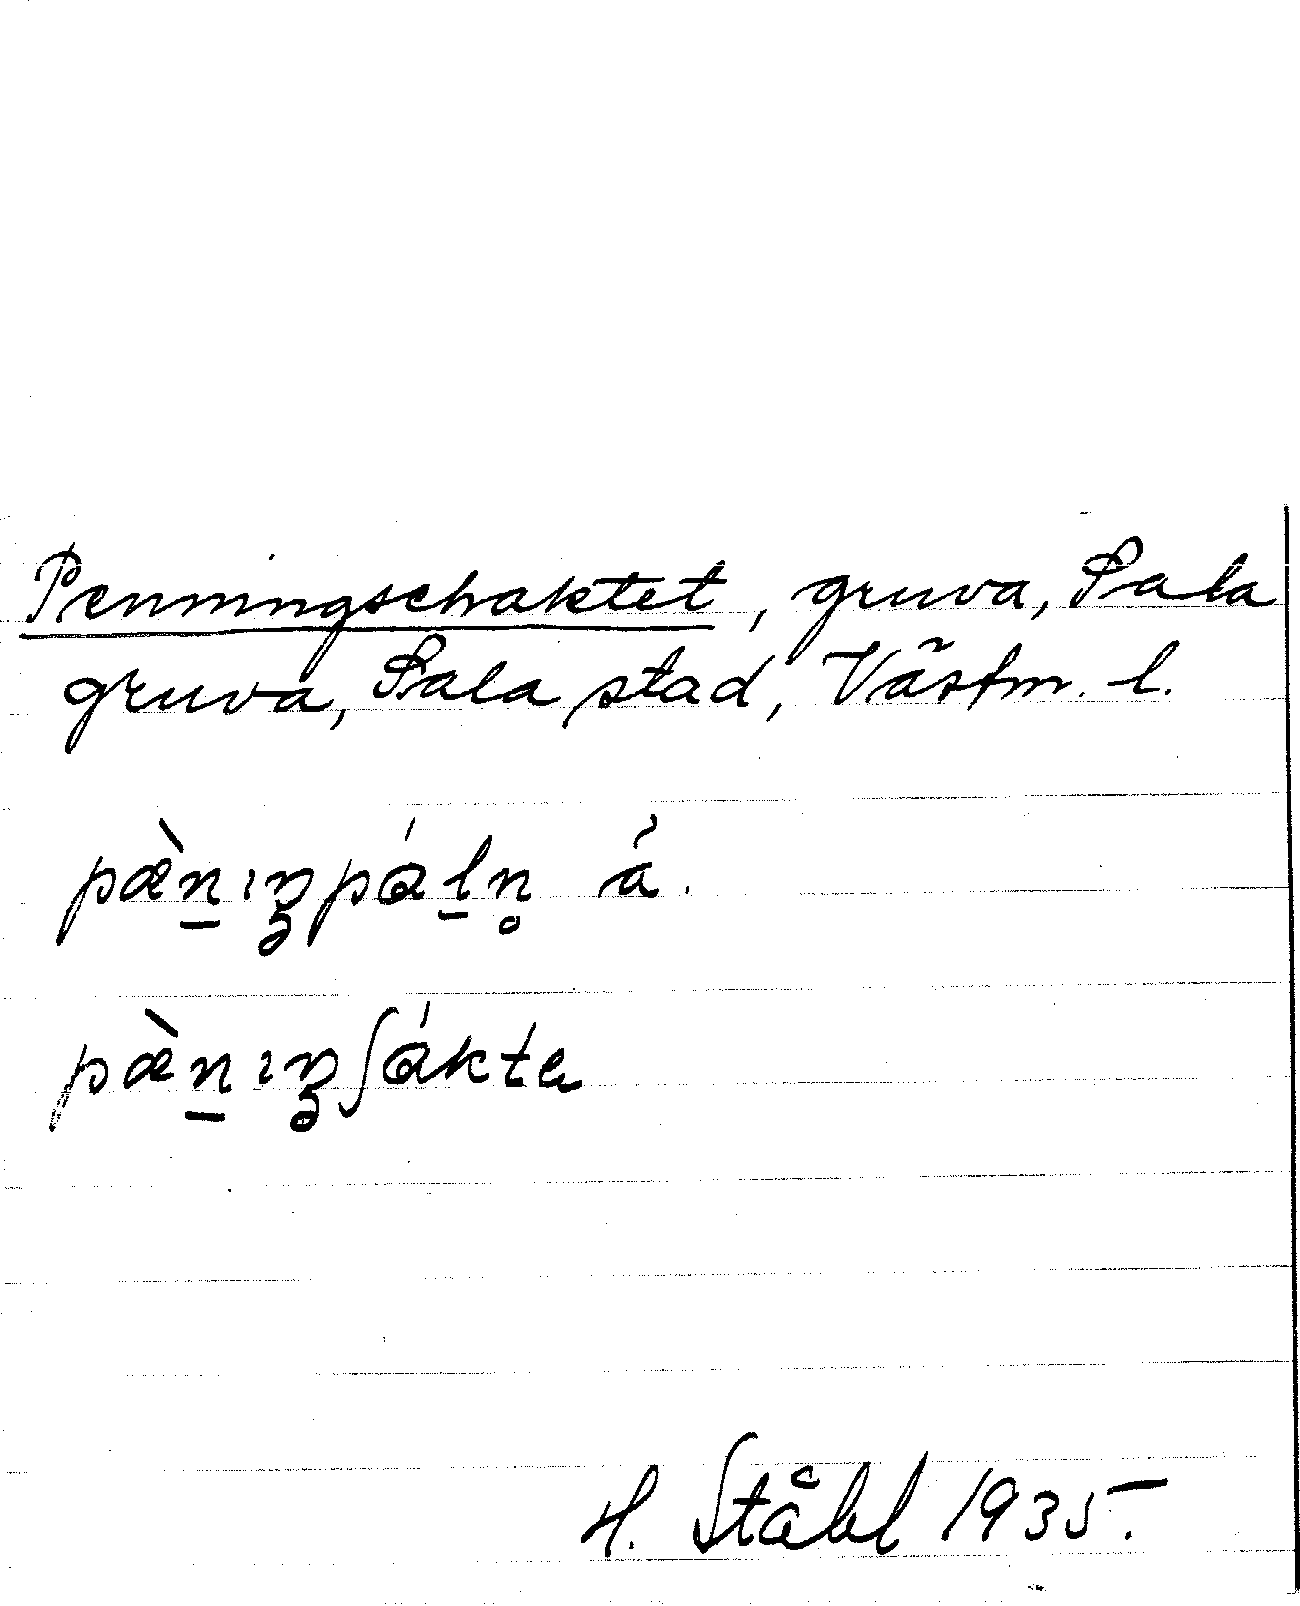 Penningschaktet, gruva, Sala
gruva, Sala stad, Västm. l.
pæ̀n̠ıŋpál̠n̥ å̀.
pæ̀n̠ıŋʃákta
H. Ståhl 1935.